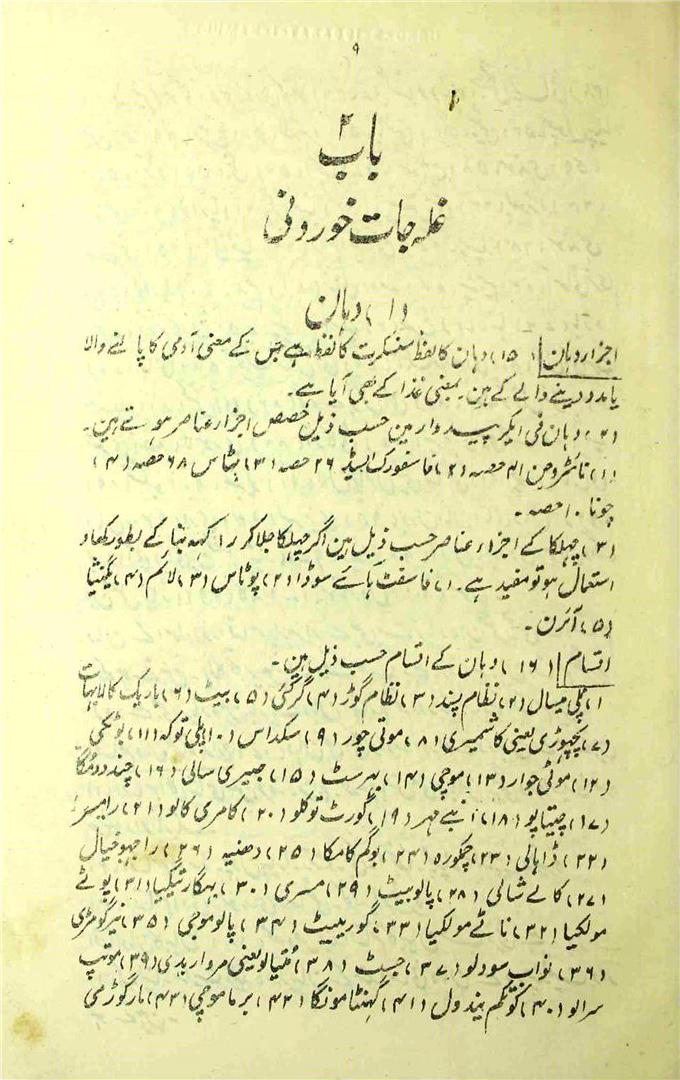 ۹
باب ۲
غلہ جات خوردنی
(۱) دہان
اجزار دہان (۱۵) دہان کا لفظ سنسکرت کا لفظ ہے جس کے معنی آدمی کا پالنے والا
یا مدد دینے والے کے ہین۔ بمعنی غذا کے بھی آیا ہے۔
(۲) دہان فی ایکر پیداوار مین حسب ذیل حصص اجزار عناصر ہوتے ہین۔
(۱) نائٹروجن ۴۱ حصہ (۲) فاسفورک ایسڈ ۲۶ حصہ (۳) پٹاس ۶۸ حصہ (۴)
چونا ۱۰ حصہ۔
(۳) چہلکا کے اجزار عناصر حسب ذیل ہین اگر چہلکا جلا کر راکہہ بنا کے بطور کھاد
استعمال ہو تو مفید ہے۔ (۱) فاسفٹ ہائے سوڈا (۲) پوٹاس (۳) لائم (۴) یگنیشیا
(۵) آئرن۔
اقسام (۱۶) دہان کے اقسام حسب ذیل ہین۔
(۱) پلی میسال (۲) نظام پسند (۳) نظام گوڑ (۴) گرگئی (۵) بیٹ (۶) باریک کالا بہات
(۷) کچپوڑی یعنی کاشمیری (۸) موتی چور (۹) سکداس (۱۰) اپلی توکہ (۱۱) بوٹکی
(۱۲) موٹی جوار (۱۳) موچی (۱۴) بہرسٹ (۱۵) جیری سالی (۱۶) چندرمُکا
(۱۷) چیتاپو (۱۸) انبے مہر (۱۹) گورٹ توکلو (۲۰) کامری کالو (۲۱) رامسر
(۲۲) ڈاہالی (۲۳) چکورہ (۲۴) بوگم کامکا (۲۵) دھنیہ (۲۶) راجہو خیال
(۲۷) کالے شالی (۲۸) پالو بیٹ (۲۹) مسری (۳۰) بہگار ٹیکیا (۳۱) پوٹے
مولکیا (۳۲) ناٹے مولکیا (۳۳) گوریبیٹ (۳۴) پالو موچی (۳۵) نیرگومڑی
(۳۶) نواب سودلو (۳۷) جسٹ (۳۸) مُتیالو یعنی مرواریدی (۳۹) موتپ
سرالو (۴۰) کوتکم بندول (۴۱) گہنٹا مونگا (۴۲) برما موچی (۴۳) مارگوڑمی